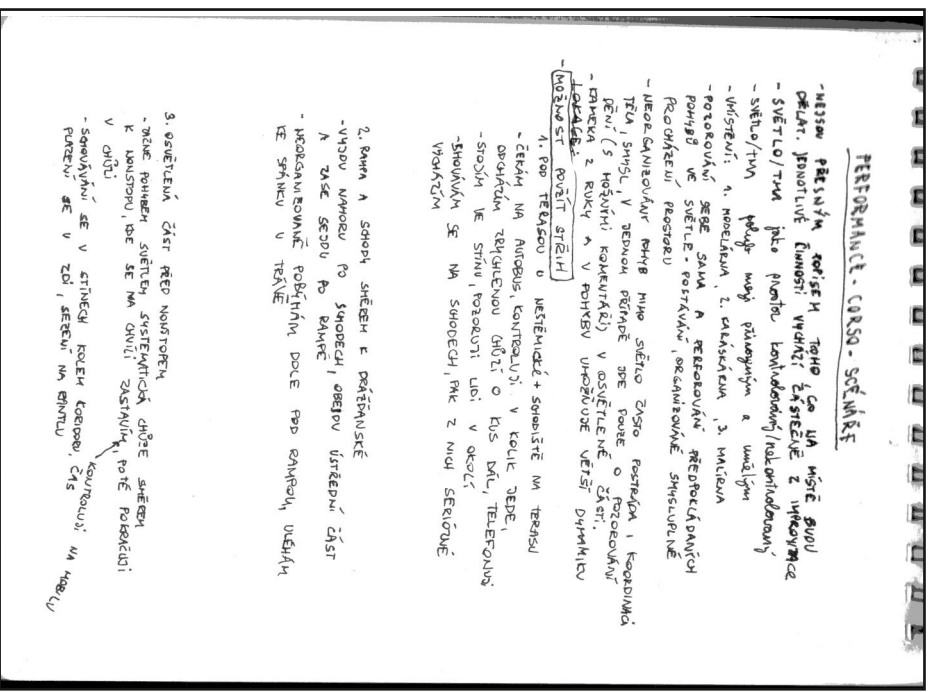 PERFORMANCE - CORSO - SCÉNÁŘE
- NEJSOU PŘESNÝM POPISEM TOHO, CO NA MÍSTĚ BUDU
DĚLAT. JEDNOTLIVÉ ČINNOSTI VYCHÁZÍ ČÁSTEČNĚ Z IMPROVIZACE
- SVĚTLO/TMA jako prostor kontrolovaný/nekontrolovaný
- SVĚTLO/TMA pohyb mezi přirozeným a umělým
- UMÍSTĚNÍ: 1. MODELÁRNA, 2. KARÁSKÁRNA, 3. MALÍRNA
- POZOROVÁNÍ SEBE SAMA A PERFOROVÁNÍ PŘEDPOKLÁDANÝCH
POHYBŮ VE SVĚTLE - POSTÁVÁNÍ, ORGANIZOVANÉ SMYSLUPLNÉ
PROCHÁZENÍ PROSTORU
- NEORGANIZOVANÝ POHYB MIMO SVĚTLO ČASTO POSTRÁDÁ I KOORDINACI
TĚLA, SMYSL, V JEDNOM PŘÍPADĚ JDE POUZE O POZOROVÁNÍ
DĚNÍ (S MOŽNÝMI KOMENTÁŘI) V OSVĚTLENÉ ČÁSTI.
- KAMERA Z RUKY A V POHYBU UMOŽŇUJE VĚTŠÍ DYNAMIKU
LOKACE:
- MOŽNOST POUŽÍT STŘIH
1. POD TERASOU U NEŠTĚMICKÉ + SCHODIŠTĚ NA TERASU
- ČEKÁM NA AUTOBUS, KONTROLUJI V KOLIK JEDE,
ODCHÁZÍM ZRYCHLENOU CHŮZÍ O KUS DÁL, TELEFONUJI
- STOJÍM VE STÍNU, POZORUJI LIDI V OKOLÍ
- SHOVÁVÁM SE NA SCHODECH, PAK Z NICH SERIÓZNĚ
VYCHÁZÍM
2. RAMPA A SCHODY SMĚREM K DRÁŽĎANSKÉ
- VYJDU NAHORU PO SCHODECH, OBEJDU ÚSTŘEDNÍ ČÁST
A ZASE SEJDU PO RAMPĚ
- NEORGANIZOVANĚ POBÝHÁM DOLE POD RAMPOU, ULÉHÁM
KE SPÁNKU V TRÁVĚ
3. OSVĚTLENÁ ČÁST PŘED NONSTOPEM
- POHYBEM SVĚTLEM SYSTEMATICKÁ CHŮZE SMĚREM
K NONSTOPU, KDE SE NA CHVÍLI ZASTAVÍM, POTÉ POKRAČUJI
V CHŮZI
KONTROLUJI NA MOBILU
- SCHOVÁVÁNÍ SE V STÍNECH KOLEM KORIDORU, ČAS
PLAZENÍ SE U ZDI, SEZENÍ NA